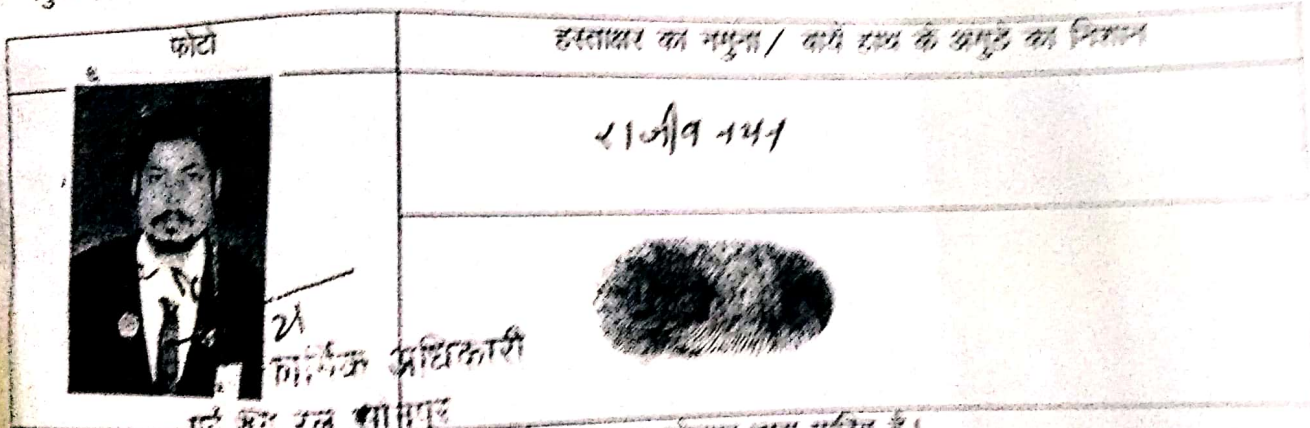 फोटो
हस्ताक्षर का नमूना / बायें हाथ के अंगूठे का निशान
राजीव नयन
कार्मिक अधिकारी